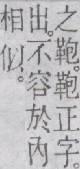 之鞄。鞄正字
出。不容於內
相似。